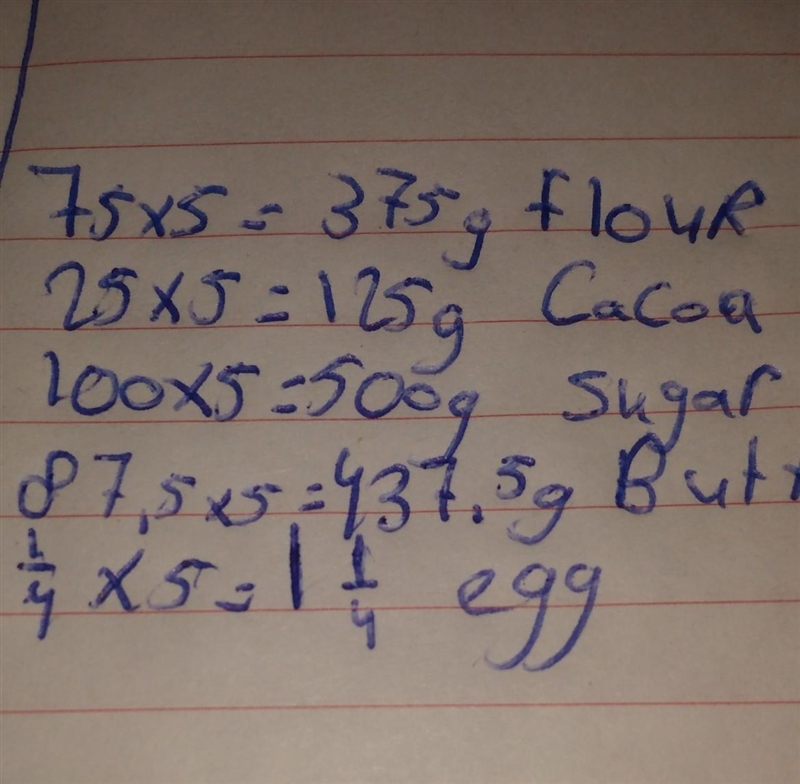 75x5 = 375g flouR
25x5 = 125g Cacoa
100x5 = 500g Sugar
87,5x5 = 437.5g
1/4 x5 = 1 1/4 egg